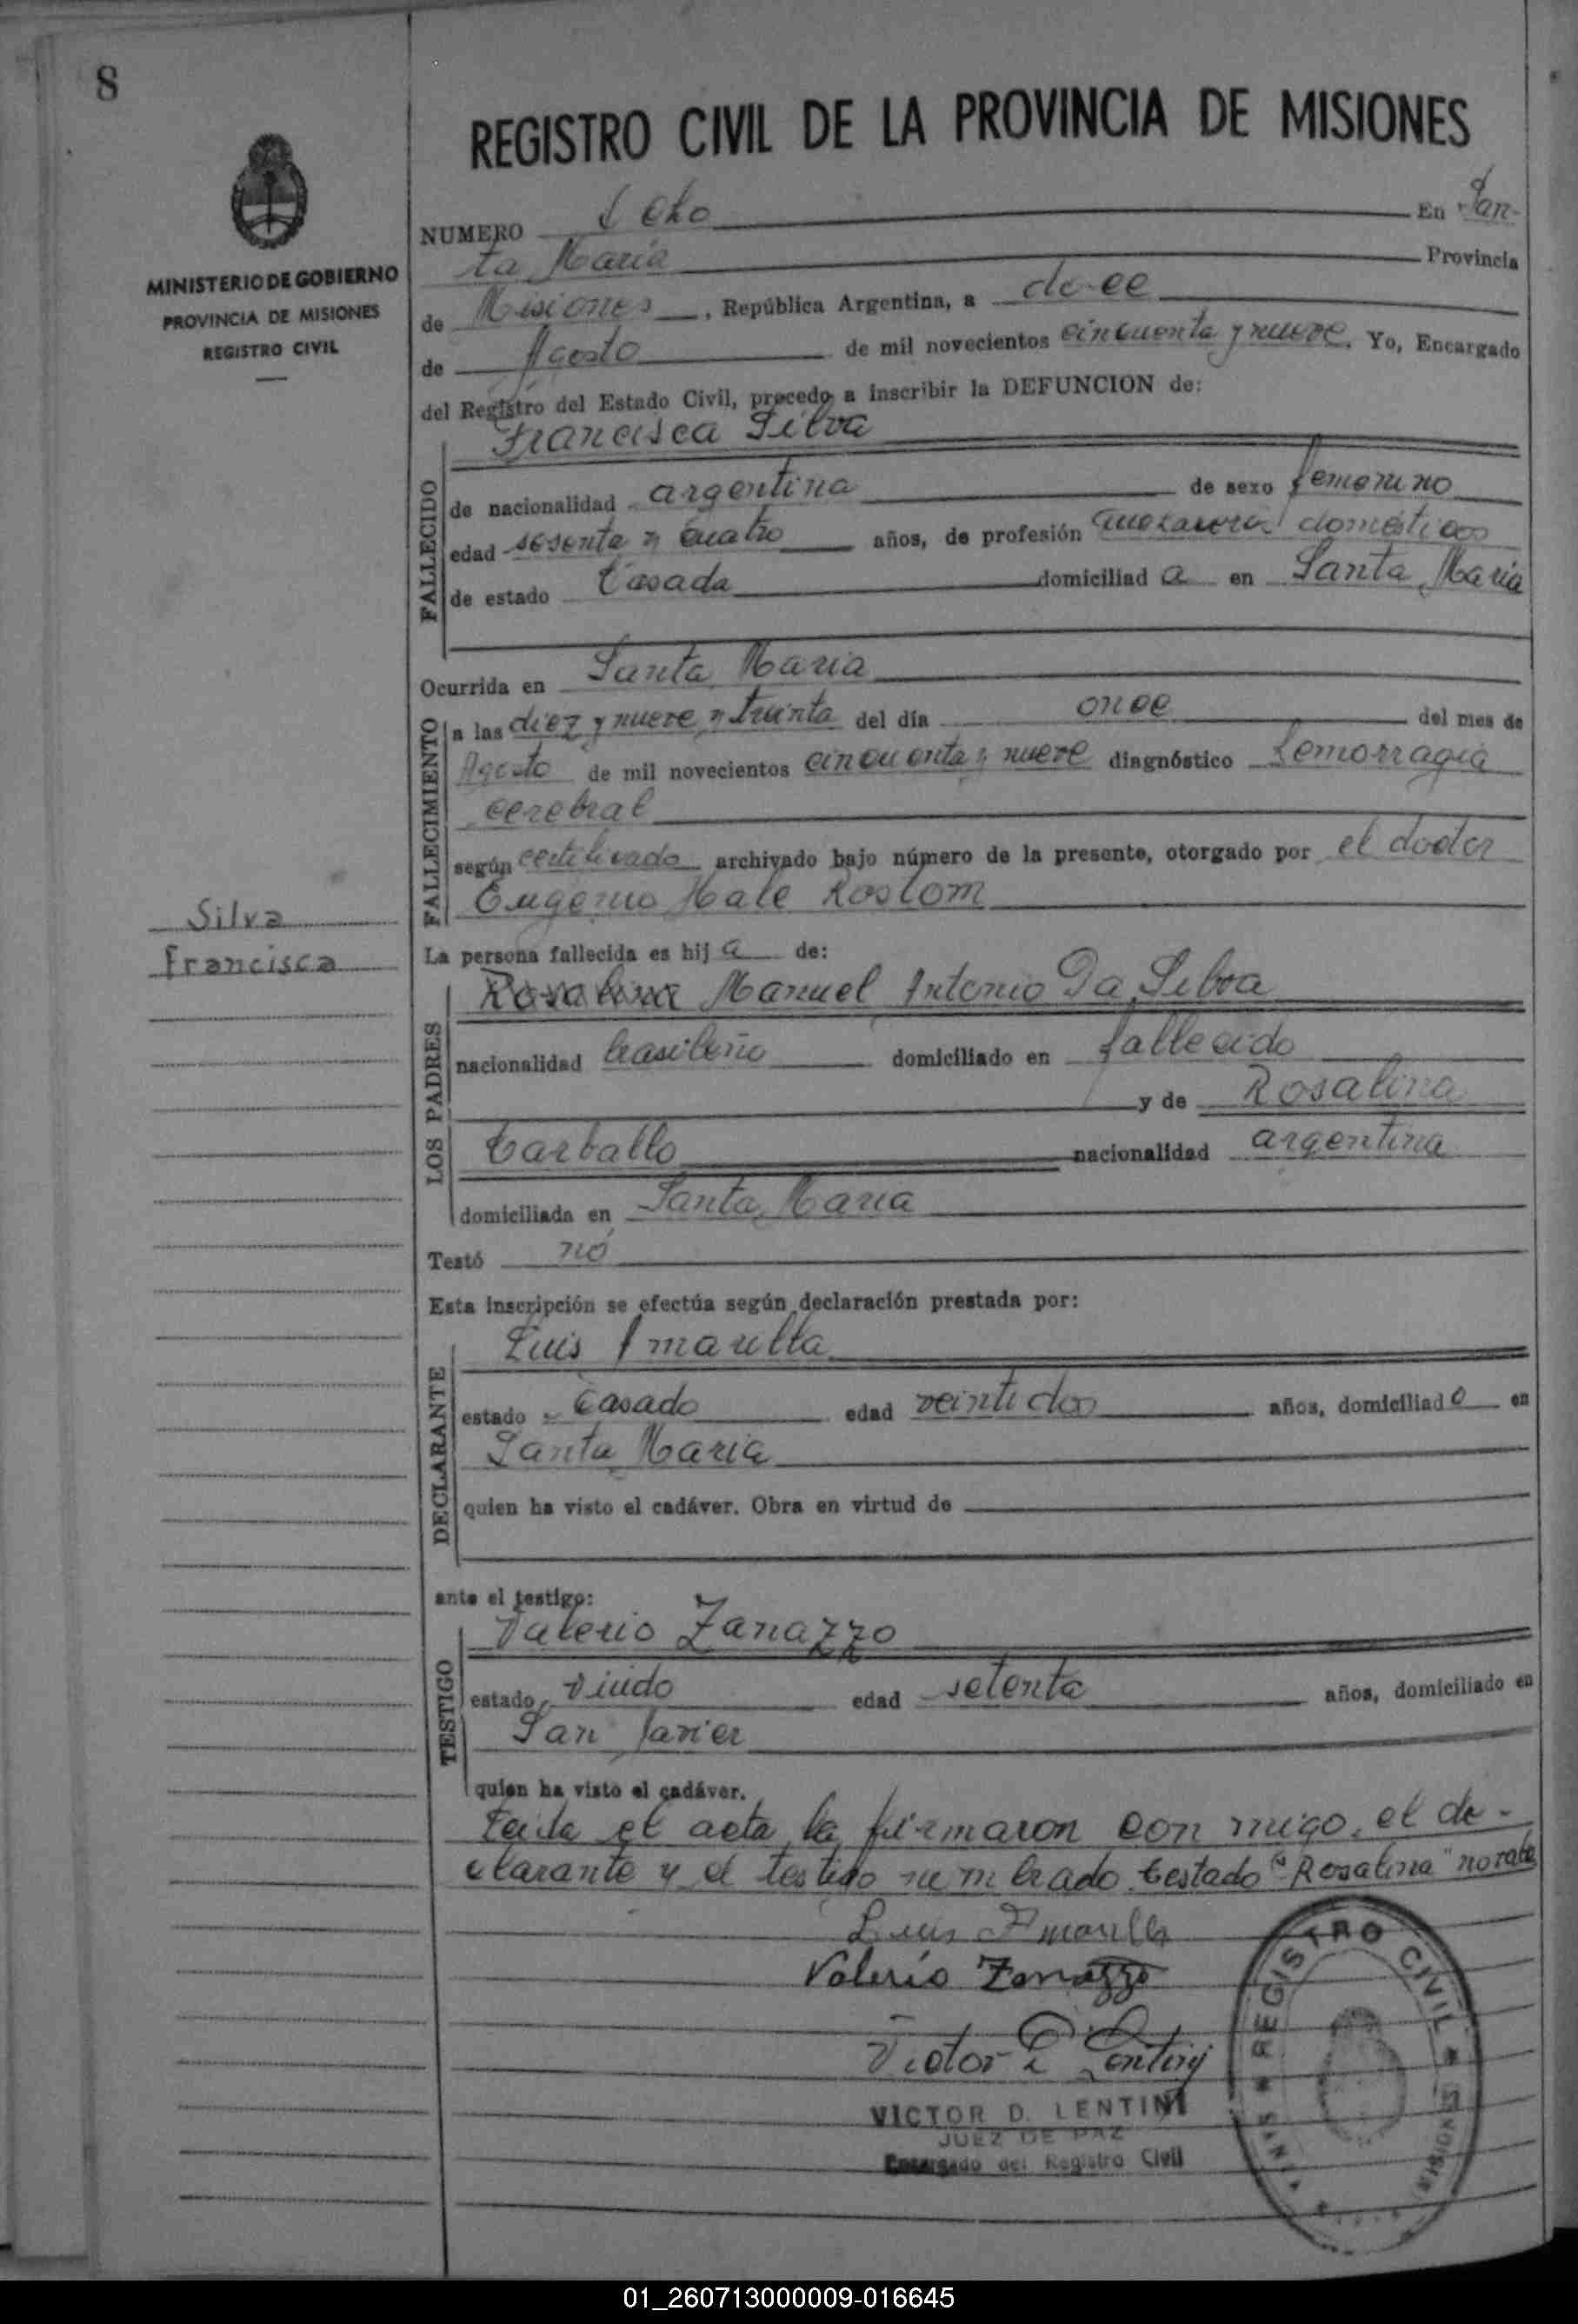 8
REGISTRO CIVIL DE LA PROVINCIA DE MISIONES
MINISTERIO DE GOBIERNO
PROVINCIA DE MISIONES
REGISTRO CIVIL
NUMERO Ocho En San-
ta Maria Provincia
de Misiones, República Argentina, a doce
de Agosto de mil novecientos cincuenta y nueve. Yo, Encargado
del Registro del Estado Civil, procedo a inscribir la DEFUNCION de:
Francisca Silva
FALLECIDO
de nacionalidad argentina de sexo femenino
edad sesenta y cuatro años, de profesión quehaceres domésticos
de estado Casada domiciliad a en Santa Maria
Ocurrida en Santa Maria
FALLECIMIENTO
a las diez y nueve y treinta del día once del mes de
Agosto de mil novecientos cincuenta y nueve diagnóstico hemorragia
cerebral
según certificado archivado bajo número de la presente, otorgado por el doctor
Eugenio Hale Rostom
Silva
Francisca
La persona fallecida es hij a de:
LOS PADRES
Rosalina Manuel Antonio Da Silva
nacionalidad brasileño domiciliado en fallecido
y de Rosalina
Carballo nacionalidad argentina
domiciliada en Santa Maria
Testó nó
Esta inscripción se efectúa según declaración prestada por:
DECLARANTE
Luis Amarilla
estado Casado edad veintidos años, domiciliad o en
Santa Maria
quien ha visto el cadáver. Obra en virtud de
ante el testigo:
TESTIGO
Valerio Zanazzo
estado viudo edad setenta años, domiciliado en
San Javier
quien ha visto el cadáver.
Leida el acta la firmaron con migo, el de-
clarante y el testigo nombrado. testado "Rosalina" no vale
Luis Amarilla
Valerio Zanazzo
Victor D Lentini
VICTOR D. LENTINI
JUEZ DE PAZ
Encargado del Registro Civil
REGISTRO CIVIL
SANTA
MISIONES
01_260713000009-016645